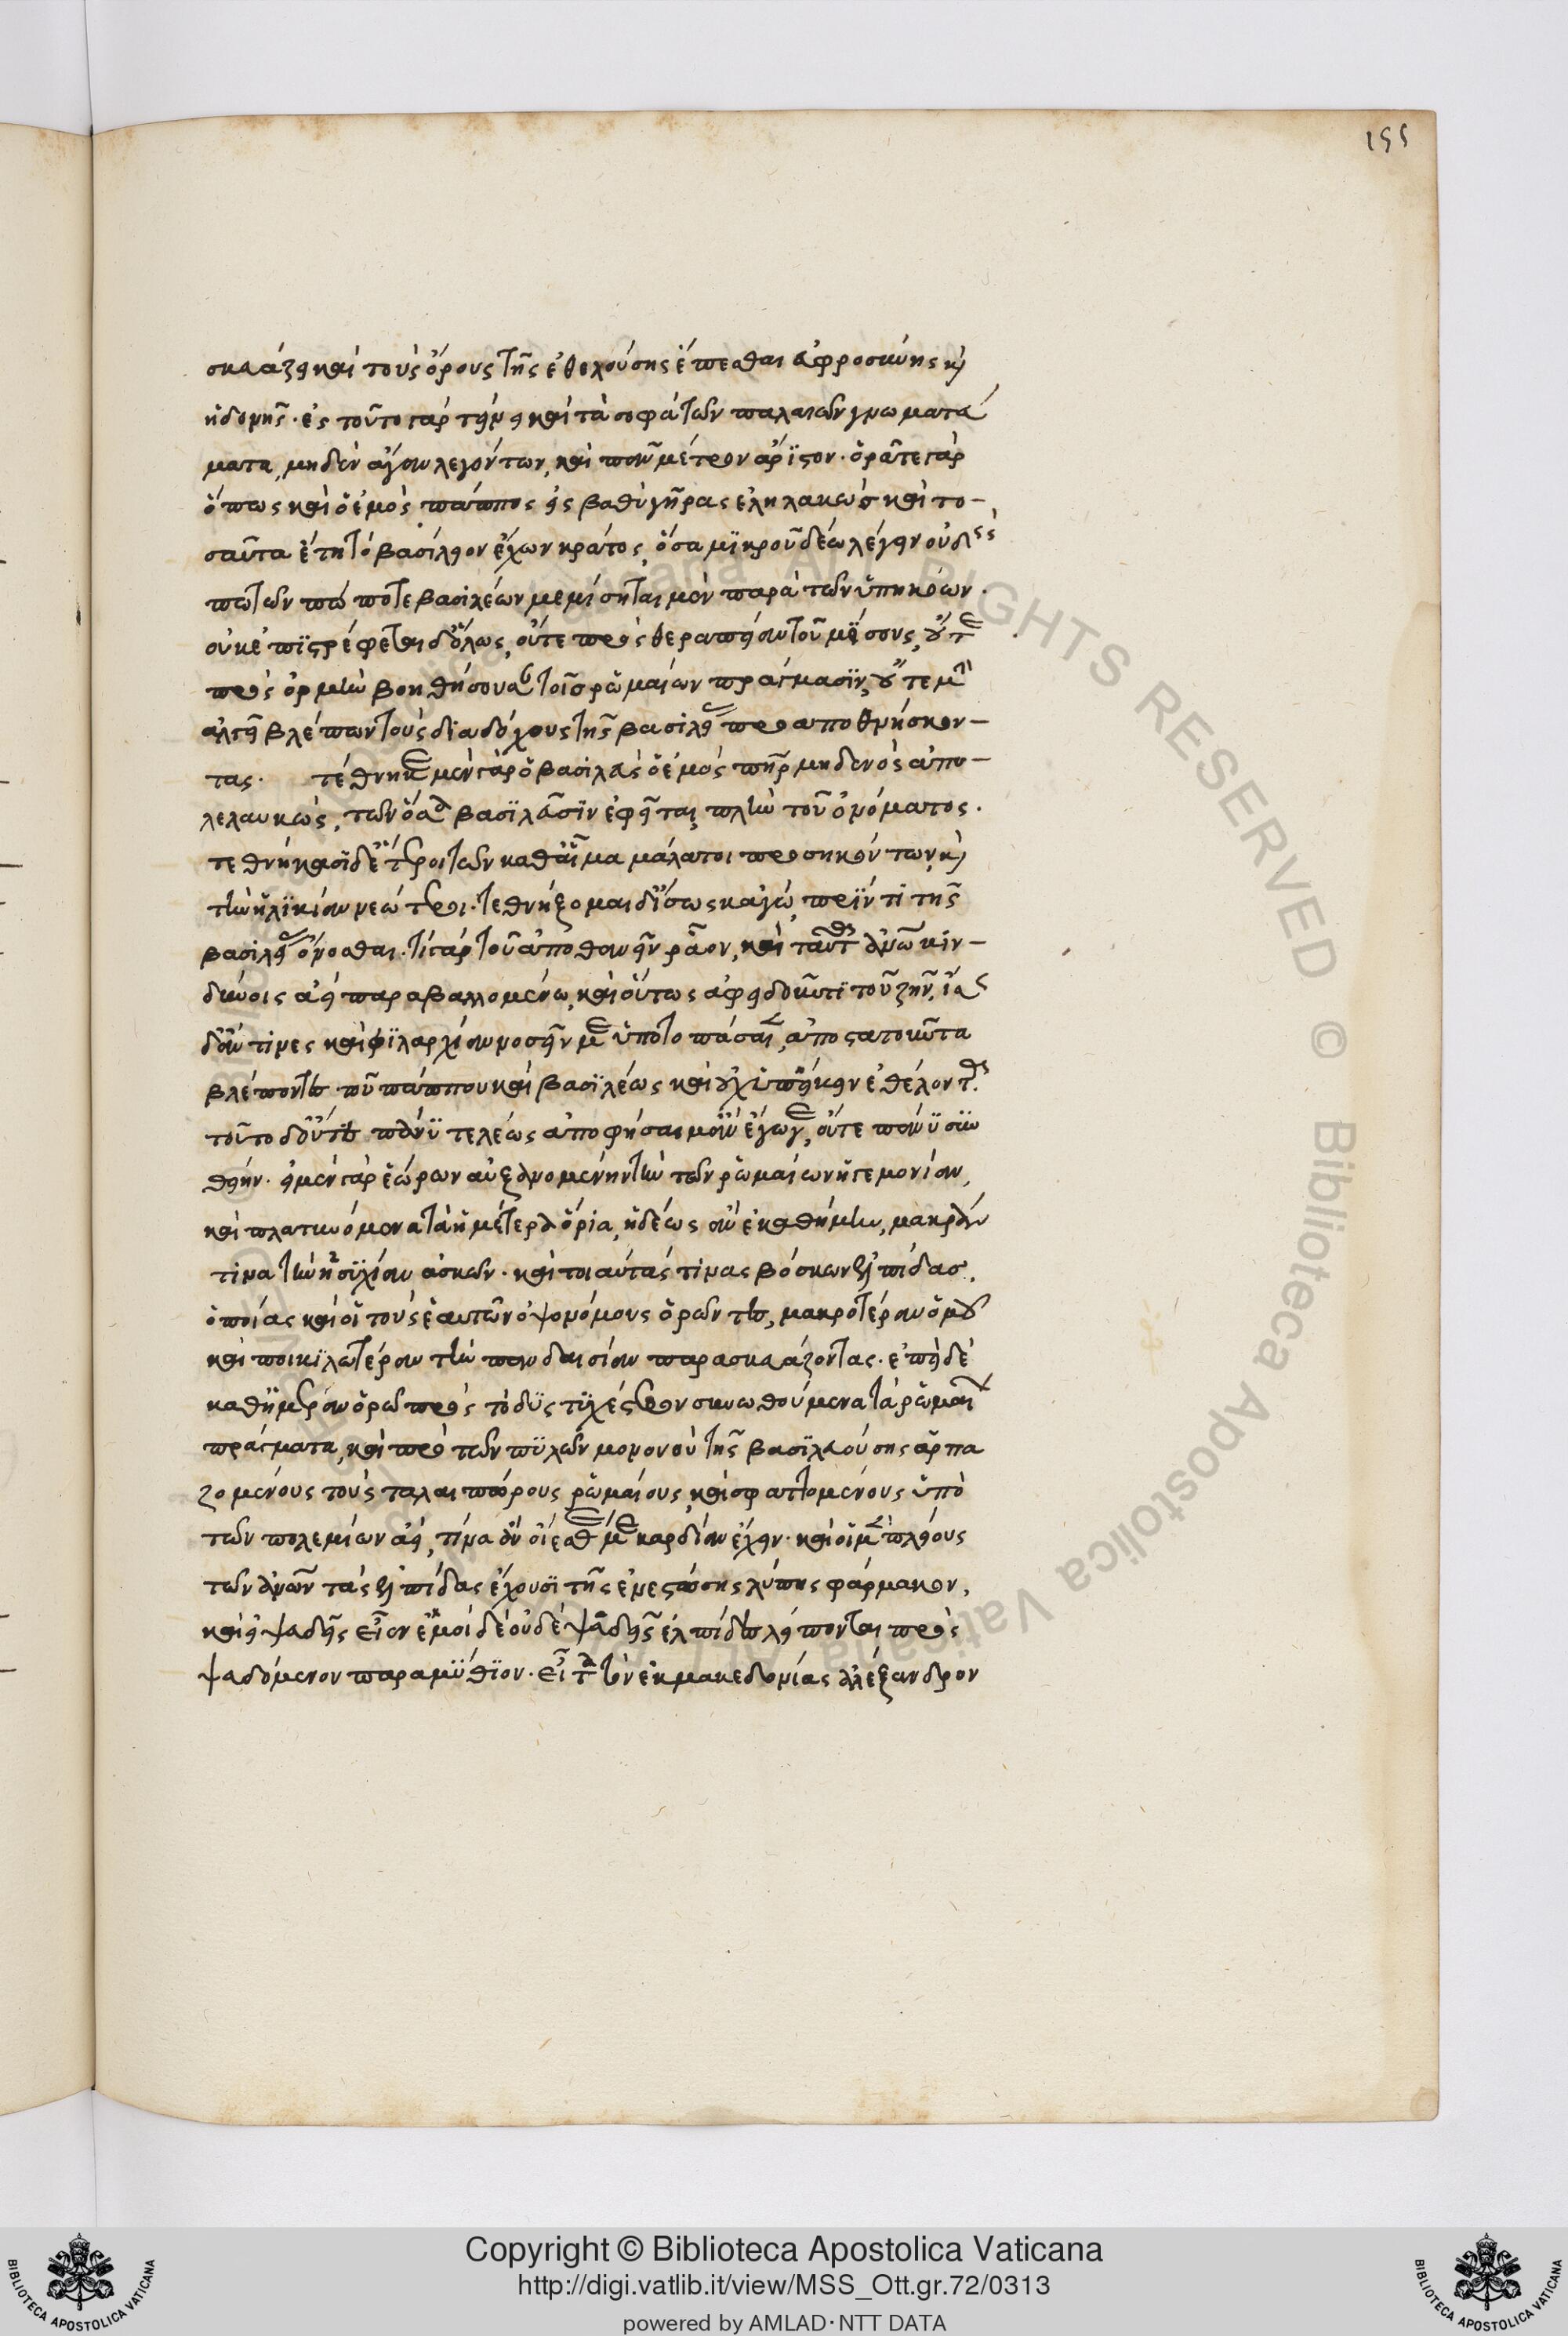 155
σκευάζει καὶ τοὺς ὅρους τῆς ἐνοχούσης ἕπεσθαι ἀφροσύνης καὶ
ἡδονῆς. εἰς τοῦτο γὰρ τείνει καὶ τὰ σοφὰ τῶν παλαιῶν γνωματα
ματα, μηδὲν ἄγαν λεγόντων, καὶ πᾶν μέτρον ἄριστον. ὁρᾶτε γὰρ
ὅπως καὶ ὁ ἐμὸς πάππος εἰς βαθὺ γῆρας ἐληλακὼς καὶ το-
σαῦτα ἔτη τὸ βασίλειον ἔχων κράτος, ὅσα μικροῦ δέω λέγειν οὐδεὶς
πω τῶν πώποτε βασιλέων μεμίσηται μὲν παρὰ τῶν ὑπηκόων.
οὐκ ἐπιστρέφεται δ' ὅλως, οὔτε πρὸς θεραπείαν τοῦ μίσους, οὔτε
πρὸς ὁρμὴν βοηθήσουσαν τοῖς ῥωμαίων πράγμασιν, οὔτε μὴν
ἀλγεῖ βλέπων τοὺς διαδόχους τῆς βασιλείας προαποθνήσκον-
τας. τέθνηκε μὲν γὰρ ὁ βασιλεὺς ὁ ἐμὸς πατὴρ μηδενὸς ἀπο-
λελαυκώς, τῶν ὅσα βασιλεῦσιν ἐφεῖται, πλὴν τοῦ ὀνόματος.
τεθνήκασι δὲ ἕτεροι τῶν καθ' αἷμα μάλα τοι προσηκόντων, καὶ
τὴν ἡλικίαν νεώτεροι. τεθνήξομαι δ' ἴσως κἀγὼ, πρίν τι τῆς
βασιλείας ὄνασθαι. τί γὰρ τοῦ ἀποθανεῖν ῥᾷον, καὶ ταῦτα ἀνδρὶ κιν-
δύνοις ἀεὶ παραβαλλομένῳ, καὶ οὕτως ἀφειδοῦντι τοῦ ζῆν. ἴσως
δ' οὖν τινες καὶ φιλαρχίαν νοσεῖν με ὑποτοπάσαιεν, ἀποστατοῦντα
βλέποντες τοῦ πάππου καὶ βασιλέως καὶ οὐχ ὑπείκειν ἐθέλοντα.
τοῦτο δ' οὔτε πάνυ τελέως ἀποφήσαιμ' ἂν ἔγωγε, οὔτε πάνυ συν
θείην. εἰ μὲν γὰρ ἑώρων αὐξανομένην τὴν τῶν ῥωμαίων ἡγεμονίαν,
καὶ πλατυνόμενα τὰ ἡμέτερα ὅρια, ἡδέως ἂν ἐκαθήμην, μακράν
τινα τὴν ἡσυχίαν ἀσκῶν. καὶ τοιαύτας τινὰς βόσκων ἐλπίδας,
ὁποίας καὶ οἱ τοὺς ἑαυτῶν ὀψονόμους ὁρῶντες, μακροτέραν ὁμοῦ
καὶ ποικιλωτέραν τὴν πανδαισίαν παρασκευάζοντας. ἐπεὶ δὲ
καθ' ἡμέραν ὁρῶ πρὸς τὸ δυστυχέστερον συνωθούμενα τὰ ῥωμαίων
πράγματα, καὶ πρὸ τῶν πυλῶν μονονοὺ τῆς βασιλευούσης ἁρπα
ζομένους τοὺς ταλαιπώρους ῥωμαίους, καὶ σφαττομένους ὑπὸ
τῶν πολεμίων ἀεί, τίνα ἂν οἴεσθέ με καρδίαν ἔχειν. καὶ οἱ μὲν πλείους
τῶν ἀνθρώπων τὰς ἐλπίδας ἔχουσι τῆς ἐνεστώσης λύπης φάρμακον,
καὶ εἰ ψευδεῖς εἶεν ἐμοὶ δὲ οὐδὲ ψευδεῖς ἐλπίδες λείπονται πρὸς
ψευδόμενον παραμύθιον. εἶτα τὸν ἐκ μακεδονίας ἀλέξανδρον
Copyright © Biblioteca Apostolica Vaticana
http://digi.vatlib.it/view/MSS_Ott.gr.72/0313
powered by AMLAD·NTT DATA